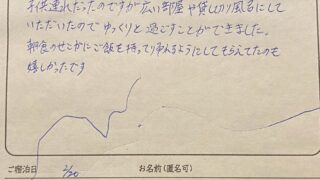 子供連れだったのですが広い部屋や貸し切り風呂にして
いただいたのでゆっくりと過ごすことができました。
朝食のせこがにご飯を持って帰れるようにしてもらえたのも
嬉しかったです
ご宿泊日 2/20 お名前(匿名可)